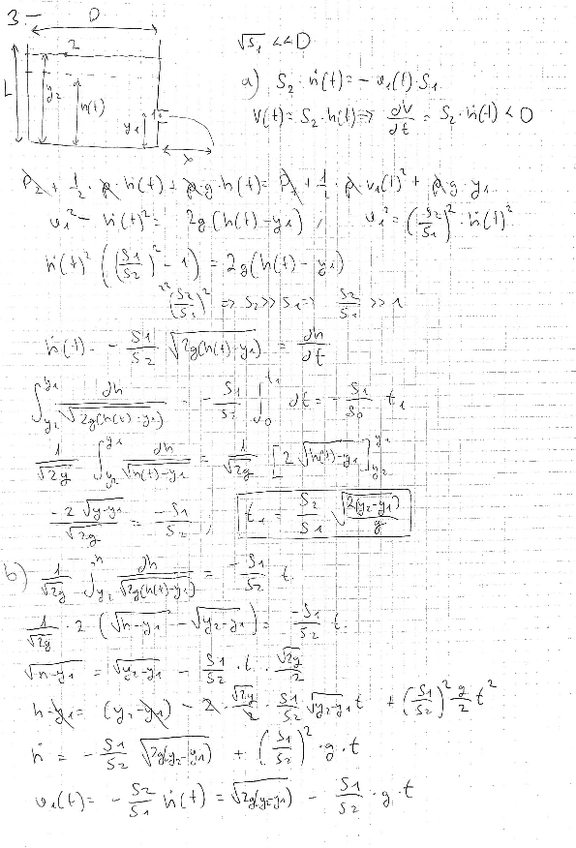 3.-
D
2
L
y₂
h(t)
y₁
1
x
√S₁ << D
a) S₂ · ḣ(t) = - v₁(t) S₁
V(t) = S₂ · h(t) ⇒ dV/dt = S₂ · ḣ(t) < 0
P₂ + 1/2 · ρ · ḣ(t) + ρ · g · h(t) = P₁ + 1/2 · ρ · v₁(t)² + ρ g · y₁
v₁² - ḣ(t)² = 2g(h(t) - y₁) , v₁² = (-S₂/S₁)² · ḣ(t)²
ḣ(t)² ((S₁/S₂)² - 1) = 2g(h(t) - y₁)
≈ (S₂/S₁)² ⇒ S₂ >> S₁ ⇒ S₂/S₁ >> 1
ḣ(t) = - S₁/S₂ √2g(h(t)-y₁) = dh/dt
∫_{y₂}^{y₁} dh/√2g(h(t)-y₁) = - S₁/S₂ ∫_0^{t₁} dt = - S₁/S₀ t₁
1/√2g ∫_{y₂}^{y₁} dh/√h(t)-y₁ = 1/√2g [2 √h(t)-y₁]_{y₂}^{y₁}
-2√y-y₁/√2g = -S₁/S₂ , t₁ = S₂/S₁ √2(y₂-y₁)/g
b) 1/√2g ∫_{y₂}^{h} dh/√2g(h(t)-y₁) = - S₁/S₂ t
1/√2g · 2 (√h-y₁ - √y₂-y₁) = -S₁/S₂ t.
√h-y₁ = √y₂-y₁ - S₁/S₂ · t · √2g/2
h-y₁ = (y₂-y₁) - 2 · √2g/2 · S₁/S₂ √y₂-y₁ t + (S₁/S₂)² g/2 t²
ḣ = - S₁/S₂ √2g(y₂-y₁) + (S₁/S₂)² · g · t
v₁(t) = - S₂/S₁ ḣ(t) = √2g(y₂-y₁) - S₁/S₂ · g · t